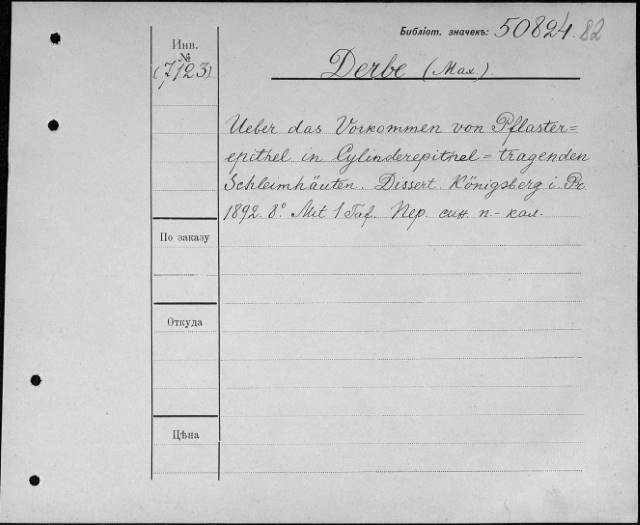 Библіот. значекъ: 50824.82
Инв. №
(7123)
Derbe (Max.)
Ueber das Vorkommen von Pflaster=
epithel in Cylinderepithel=tragenden
Schleimhäuten. Dissert. Königsberg i. Pr.
1892. 8° Mit 1 Taf. Пер. син. п.-кал.
По заказу
Откуда
Цѣна